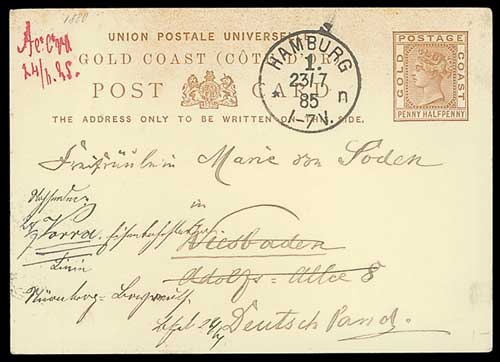 1880
Accra
24/6.85.
UNION POSTALE UNIVERSE
GOLD COAST (CÔTE D'OR)
POST CARD
THE ADDRESS ONLY TO BE WRITTEN ON THIS SIDE.
HAMBURG
1.
23/7
85
1-7 N.
POSTAGE
GOLD COAST
PENNY HALFPENNY
Freifräulein Marie von Soden
in
Wiesbaden
Adolfs-Allee 8
Deutschland.
Linie
Nürnberg-